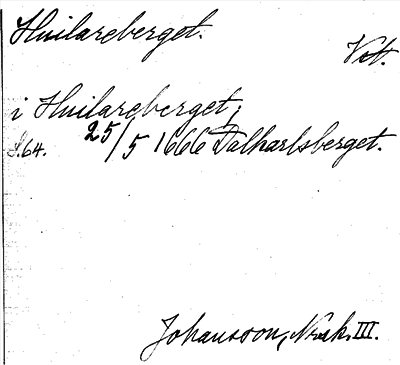 Hvilareberget.
Vrt.
i Hvilareberget;
S.64. 25/5 1666 Dalkarlsberget.
Johansson, Norak. III.